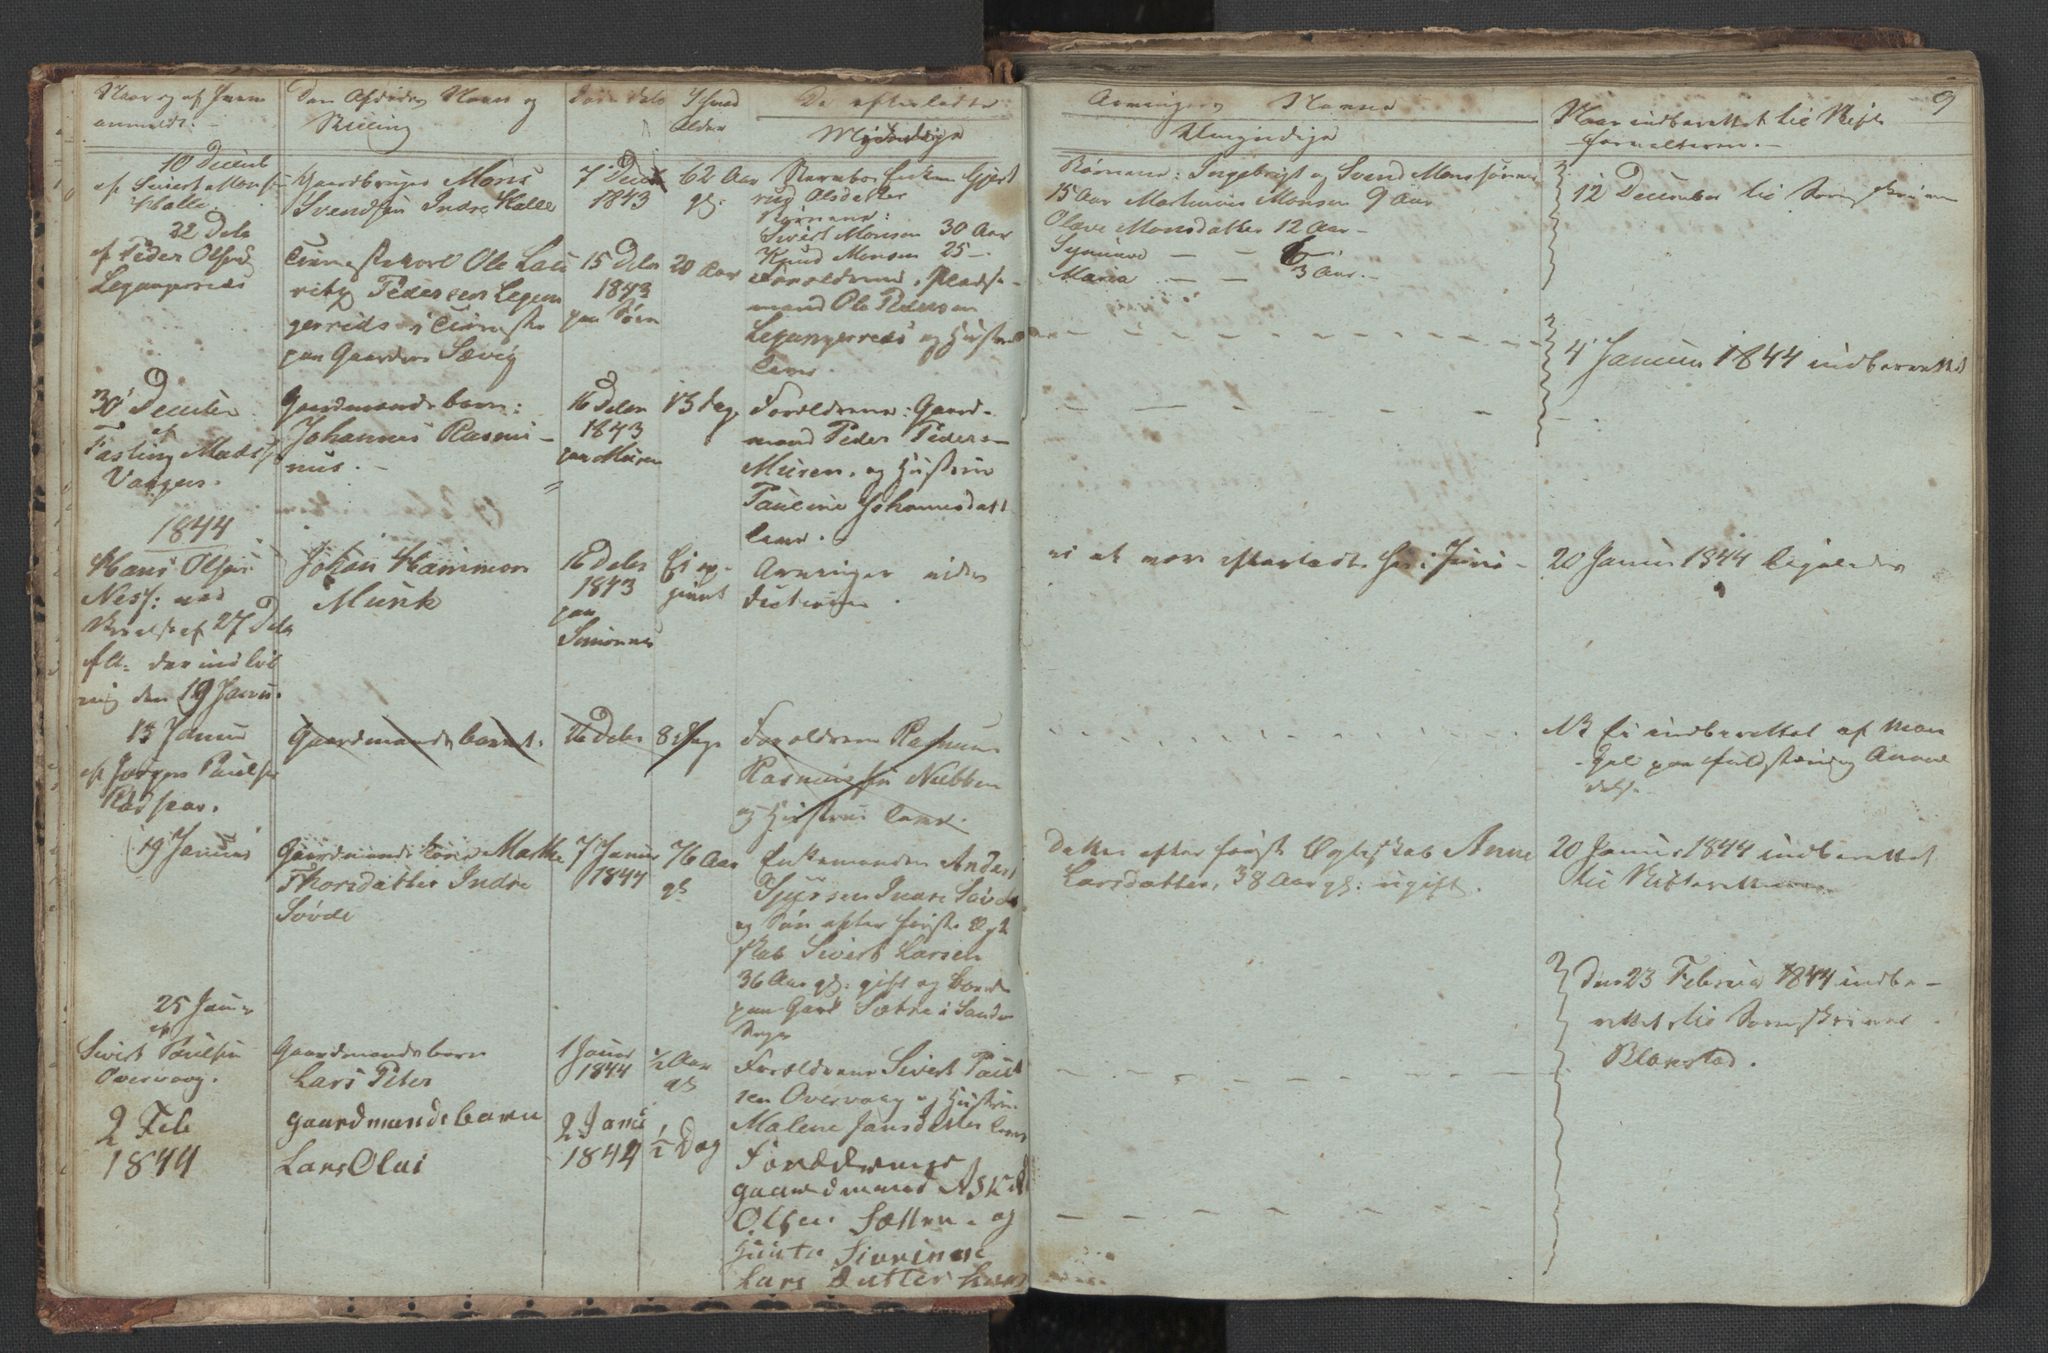 Naar og af hvem
anmeldt.
Den Afdødes Navn og
Stilling
Døds dato
Alder
De efterladte
Myndige
Arvingers Navne
Umyndige
Naar indberettet til Skifte
forvalteren.
9
10 Decemb
af Sivert Monsen
Halle.
Gaardbruger Mons
Svendsen Indre Halle
7 Decbr
1843
62 Aar
gl.
Enken Gjert
rud Olsdatter
Børnene:
Sivert Monsen 30 Aar
Knud Monsen 25 -
Børnene: Ingebrigt og Svend Monssønner
15 Aar Martinus Monsen 9 Aar
Olave Monsdatter 12 Aar -
Synnøve - - 6
Maria - - 3 Aar. -
12 December til Sorenskriveren
22 Dcbr
af Peder Olsen
Legangereids
Tjenestekarl Ole Lau
ritz Pedersen Legan
gereids i Tjeneste
paa Gaarden Sævig
15 Dcbr
1843
paa Søen
20 Aar
Forældrene, Plads-
mand Ole Pedersen
Legangereids og Hustrue
lever.
4 Januar 1844 indberettet
30 Decmber
af
Mads
Vaagen.
Gaardmandsbarn:
Johannes Rasmi-
nus. -
16 Dcbr
1843
paa Muren
13 Dage
Forældrene: Gaard-
mand Peder Peders-
Muren. og Hustrue
Pauline Johannesdatt
lever.
1844
Hans Olsen
Ness: ved
Skrivelse af 27 Dcbr
f A: der indløb
mig den 19 Januar.
Johan Hammon
Munk
16 Dcbr
1843
paa
Ei op-
givet
Arvinger vides
ei at være efterladt her i
20 Januar 1844 ligeledes
13 Januar
af Jørgen Paulsen
Gaardmandsbarn.
26 Dcbr
8 Dage
Forældrene Rasmus
Rasmussen Nubben
og Hustrue lever.
NB Ei indberettet af Man
gel paa fuldstændig Anmel
delse
19 Januar
Gaardmandskone Marthe
Thorsdatter Indre
Søvde
7 Januar
1844
76 Aar
gl
Enkemanden Anders
Sjursen Indre Søvde
og Søn efter første Ægte
skab Sivert Larsen
36 Aar gl: gift og Boende
paa Gard Sætre i Sande
Sogn
Datter efter første Ægteskab Anne
Larsdatter, 38 Aar gl: ugift.
20 Januar 1844 indberettet
til Skifteretten
25 Janu
af
Sivert Paulsen
Overvaag.
Gaardmandsbarn
Lars Peter
1 Januar
1844
1/2 Aar
gl
Forældrene Sivert Paul
sen Overvaag og Hustrue
Malene Jansdatter lever
Den 23 Februar 1844 indbe-
rettet til Sorenskriver
Blankstad.
2 Feb
1844
gaardmandsbarn
Lars Olai
2 Janu
1844
1/2 Dag
Forældrene
gaardmand
Olsen Sætter. og
Hustru Sivrine
Lars Datter lever